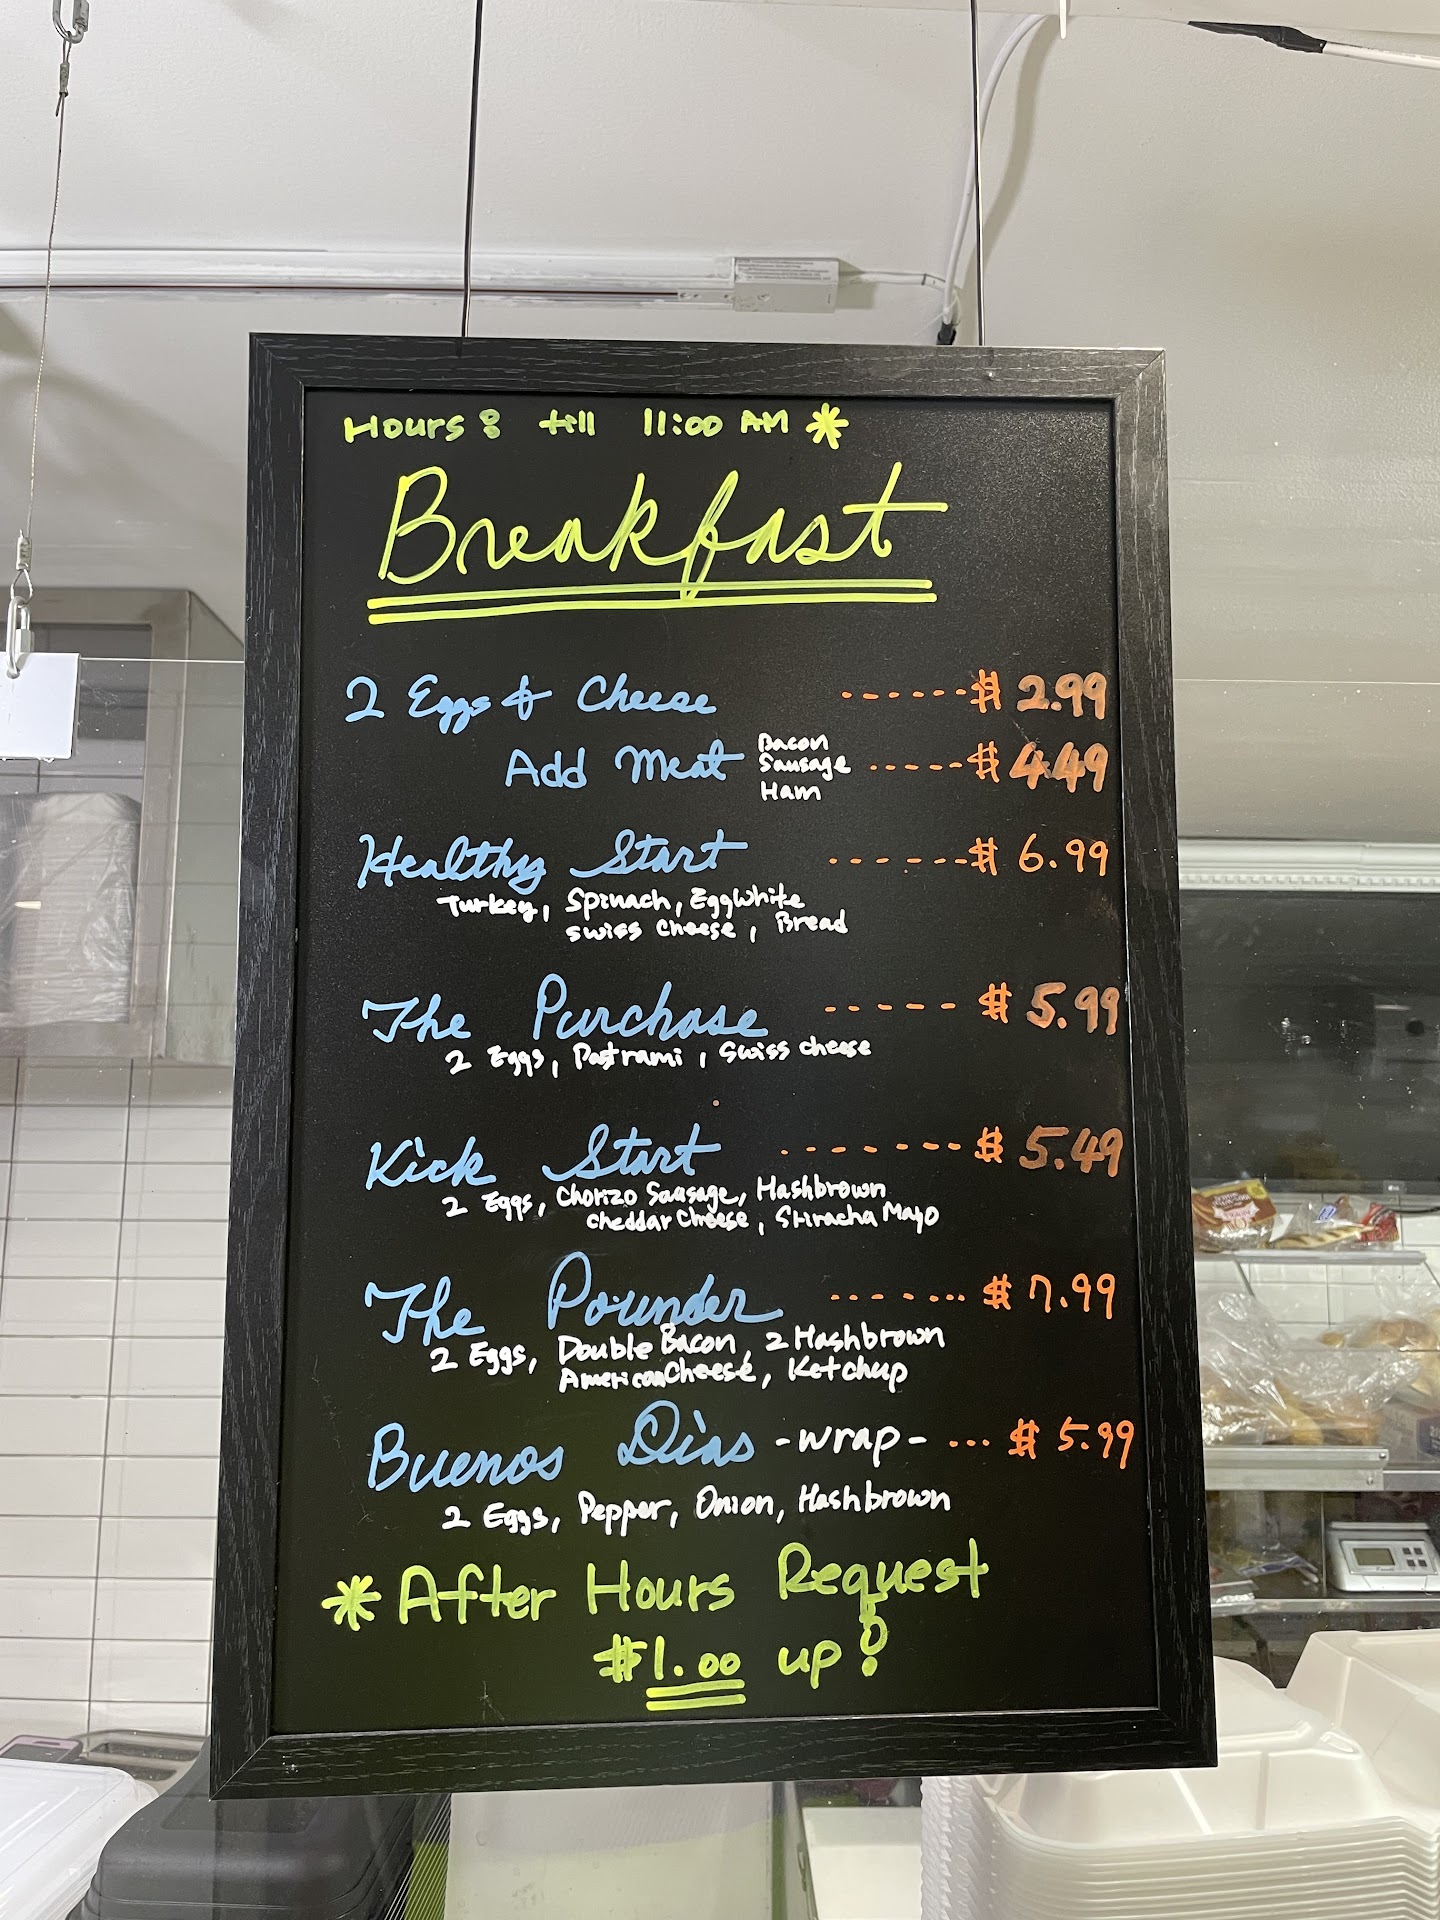 Hours: till 11:00 AM *
Breakfast
2 Eggs & Cheese ------$ 2.99
Add Meat Bacon Sausage Ham -----$ 4.49
Healthy Start ------$ 6.99
Turkey, Spinach, Egg White
Swiss Cheese, Bread
The Purchase ----- $ 5.99
2 Eggs, Pastrami, Swiss cheese
Kick Start ------- $ 5.49
2 Eggs, Chorizo Sausage, Hashbrown
Cheddar Cheese, Sriracha Mayo
The Pounder ------- $ 7.99
2 Eggs, Double Bacon, 2 Hashbrown
American Cheese, Ketchup
Buenos Dias -wrap- ... $ 5.99
2 Eggs, Pepper, Onion, Hashbrown
* After Hours Request
$1.00 up!